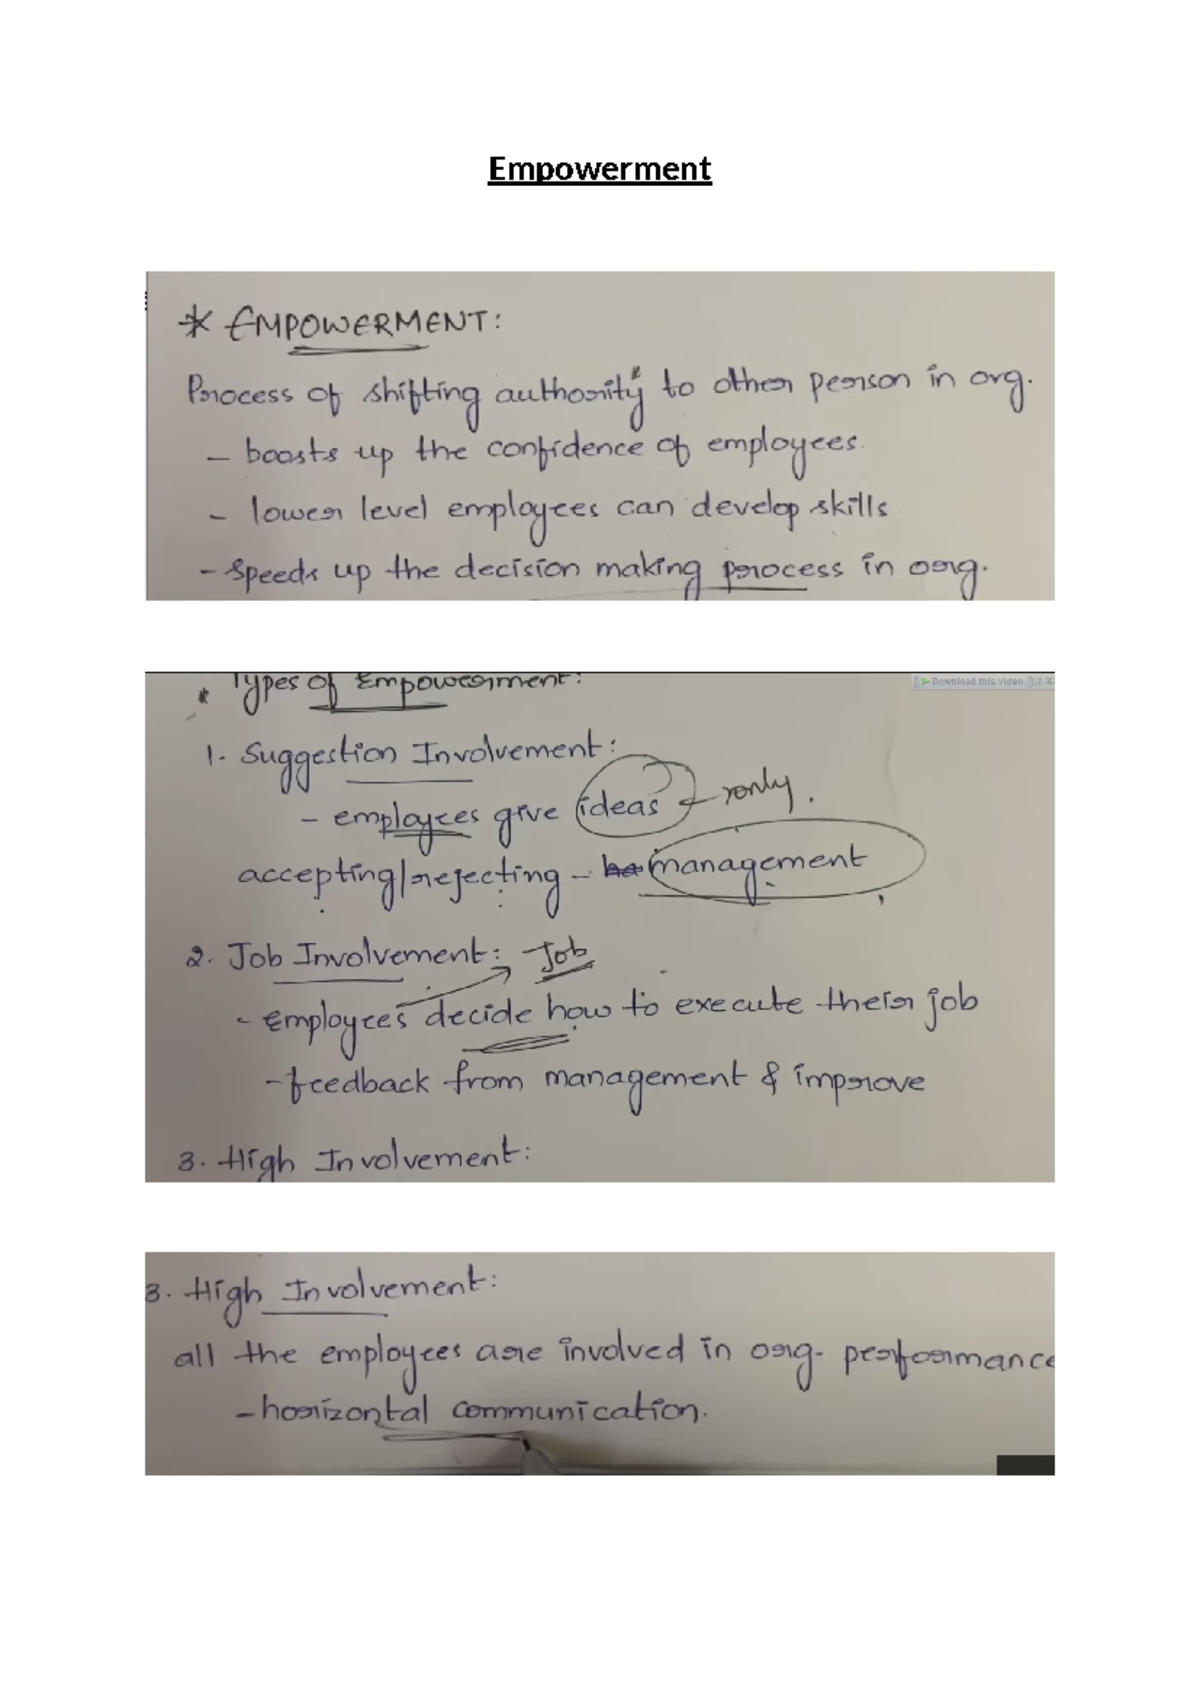 Empowerment
* EMPOWERMENT:
Process of shifting authority to other person in org.
- boosts up the confidence of employees.
- lower level employees can develop skills
- speeds up the decision making process in org.
* Types of Empowerment:
Download this video
1. Suggestion Involvement:
- employees give ideas - only.
accepting/rejecting - management
2. Job Involvement: Job
- Employees decide how to execute their job
- feedback from management & improve
3. High Involvement:
3. High Involvement:
all the employees are involved in org. performance
- horizontal communication.